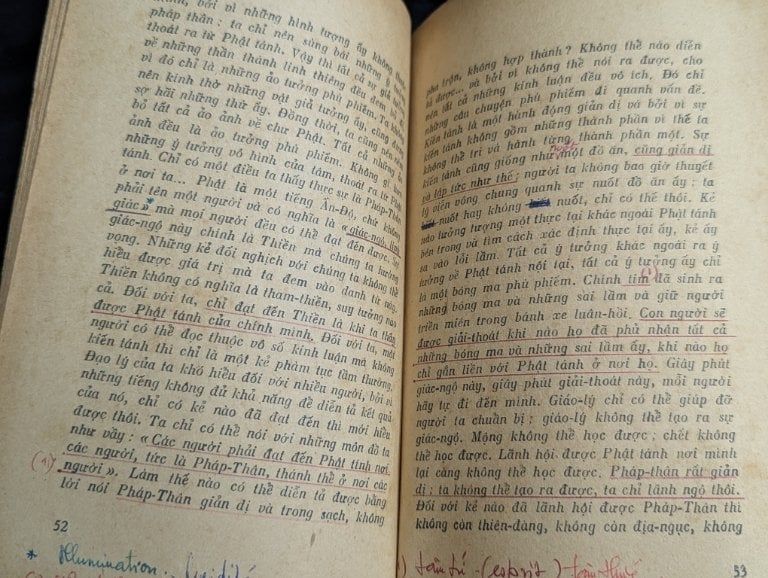 mình, bởi vì những hình tượng ấy không
pháp thân : ta chỉ nên sùng bái những
thoát ra từ Phật tánh. Vậy thì tất cả sự giả tưởng
về những thần thánh linh thiêng đều đem bỏ
vì đó chỉ là những ảo tưởng phù phiếm. Ta không
nên kính thờ những vật giả tưởng ấy, cũng đừng
sợ hãi những thứ ấy. Đồng thời, ta cũng nên
bỏ tất cả ảo ảnh về chư Phật. Tất cả những
ảnh đều là ảo tưởng phù phiếm. Không gì
những ý tưởng vô hình của tâm, thoát ra từ Phật
tánh. Chỉ có một điều ta thấy thực sự là Pháp-Thân
ở nơi ta... Phật là một tiếng Ấn-Độ, chứ không
phải tên một người và có nghĩa là « giác-ngộ, tỉnh
giác »* mà mọi người đều có thể đạt đến được. Sự
giác-ngộ này chính là Thiền mà chúng ta hướng
vọng. Những kẻ đối nghịch với chúng ta không thể
hiểu được giá trị mà ta đem vào danh từ này.
Thiền không có nghĩa là tham-thiền, suy tưởng nào
cả. Đối với ta, chỉ đạt đến Thiền là khi ta thấy
được Phật tánh của chính mình. Đối với ta, một
người có thể đọc thuộc vô số kinh luận mà không
kiến tánh thì chỉ là một kẻ phàm tục tầm thường.
Đạo lý của ta khó hiểu đối với nhiều người, bởi vì
những tiếng không đủ khả năng để diễn tả kết quả
của nó, chỉ có kẻ nào đã đạt đến thì mới hiểu
được thôi. Ta chỉ có thể nói với những môn đồ ta
như vầy : « Các người phải đạt đến Phật tính nơi
các người, tức là Pháp-Thân, thánh thể ở nơi các
người ». Làm thế nào có thể diễn tả được bằng
lời nói Pháp-Thân giản dị và trong sạch, không
52
* Illumination
pha trộn, không hợp thành? Không thể nào diễn
tả được... và bởi vì không thể nói ra được, cho
nên tất cả những kinh luận đều vô ích. Đó chỉ
những câu chuyện phù phiếm đi quanh vấn đề.
Kiến tánh là một hành động giản dị và bởi vì sự
Kiến tánh không gồm những thành phần vì thế ta
không thể tri và hành từng thành phần một. Sự
kiến tánh cũng giống như nuốt một đồ ăn, cũng giản dị
và lập tức như thế ; người ta không bao giờ thuyết
lý viển vông chung quanh sự nuốt đồ ăn ấy : ta
nuốt hay không nuốt, chỉ có thế thôi. Kẻ
nào tưởng tượng một thực tại khác ngoài Phật tánh
bên trong và tìm cách xác định thực tại ấy, kẻ ấy
sa vào lỗi lầm. Tất cả ý tưởng khác ngoài ra ý
tưởng về Phật tánh nội tại, tất cả ý tưởng ấy chỉ
là một bóng ma phù phiếm. Chính tim (1) đã sinh ra
những bóng ma và những sai lầm và giữ người
triền miên trong bánh xe luân-hồi. Con người sẽ
được giải-thoát khi nào họ đã phủ nhận tất cả
những bóng ma và những sai lầm ấy, khi nào họ
chỉ gắn liền với Phật tánh ở nơi họ. Giây phút
giác-ngộ này, giây phút giải-thoát này, mỗi người
hãy tự đi đến mình. Giáo-lý chỉ có thể giúp đỡ
người ta chuẩn bị ; giáo-lý không thể tạo ra sự
giác-ngộ. Mộng không thể học được ; chết không
thể học được. Lãnh hội được Phật tánh nơi mình
lại càng không thể học được. Pháp-thân rất giản
dị : ta không thể tạo ra được, ta chỉ lãnh ngộ thôi.
Đối với kẻ nào đã lãnh hội được Pháp-Thân thì
không còn thiên-đàng, không còn địa-ngục, không
53
(esprit)